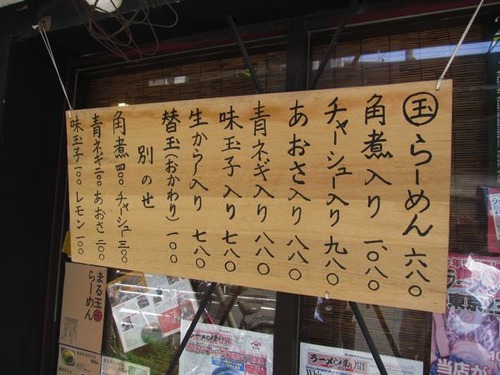 玉らーめん 六八〇
角煮入り 一、〇八〇
チャーシュー入り 九八〇
あおさ入り 八八〇
青ネギ入り 八八〇
味玉子入り 七八〇
生から〜入り 七八〇
替玉(おかわり)一〇〇
別のせ
角煮 四〇〇 チャーシュー 三〇〇
青ネギ 二〇〇 あおさ 二〇〇
味玉子 一〇〇 レモン 一〇〇
まる玉
らーめん
ラーメン新聞
ラーメン新聞
東京
当店が